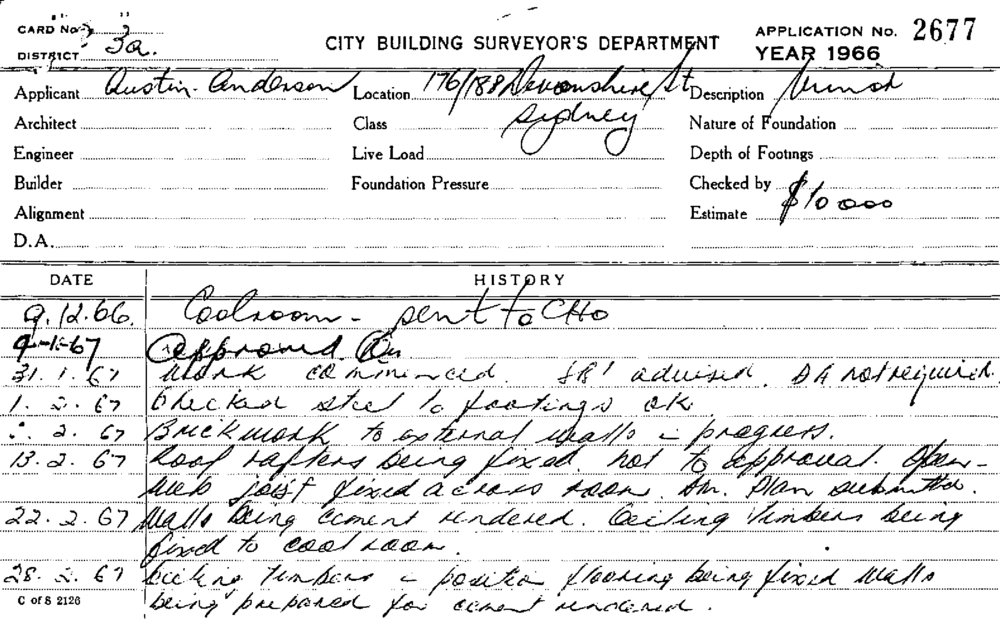 CARD No. 2
DISTRICT 3a.
CITY BUILDING SURVEYOR'S DEPARTMENT
APPLICATION No. 2677
YEAR 1966
Applicant Austin-Anderson Location 176/188 Devonshire St Description
Architect Class Sydney Nature of Foundation
Engineer Live Load Depth of Footings
Builder Foundation Pressure Checked by
Alignment Estimate $10000
D.A.
DATE HISTORY
9.12.66. Coolroom - sent to CHO
9-1-67 Approved
31.1.67 Work commenced. advised. DA not required.
1.2.67 Checked steel to footings ok.
2.67 Brickwork to external walls progress.
13.2.67 Roof rafters being fixed. not to approval. Open-
web joist fixed across room. Plan submitted.
22.2.67 Walls being cement rendered. Ceiling timbers being
fixed to cool room.
28.2.67 Ceiling timbers position flooring being fixed Walls
being prepared for cement rendered.
C of S 2126